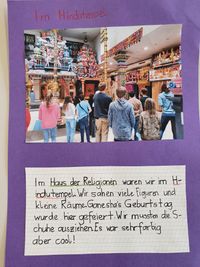 Im Hindutempel
Im Haus der Religionen waren wir im Hi-
ndutempel. Wir sahen viele Figuren und
kleine Räume. Ganesha's Geburtstag
wurde hier gefeiert. Wir mussten die S-
chuhe ausziehen. Es war sehr farbig
aber cool!